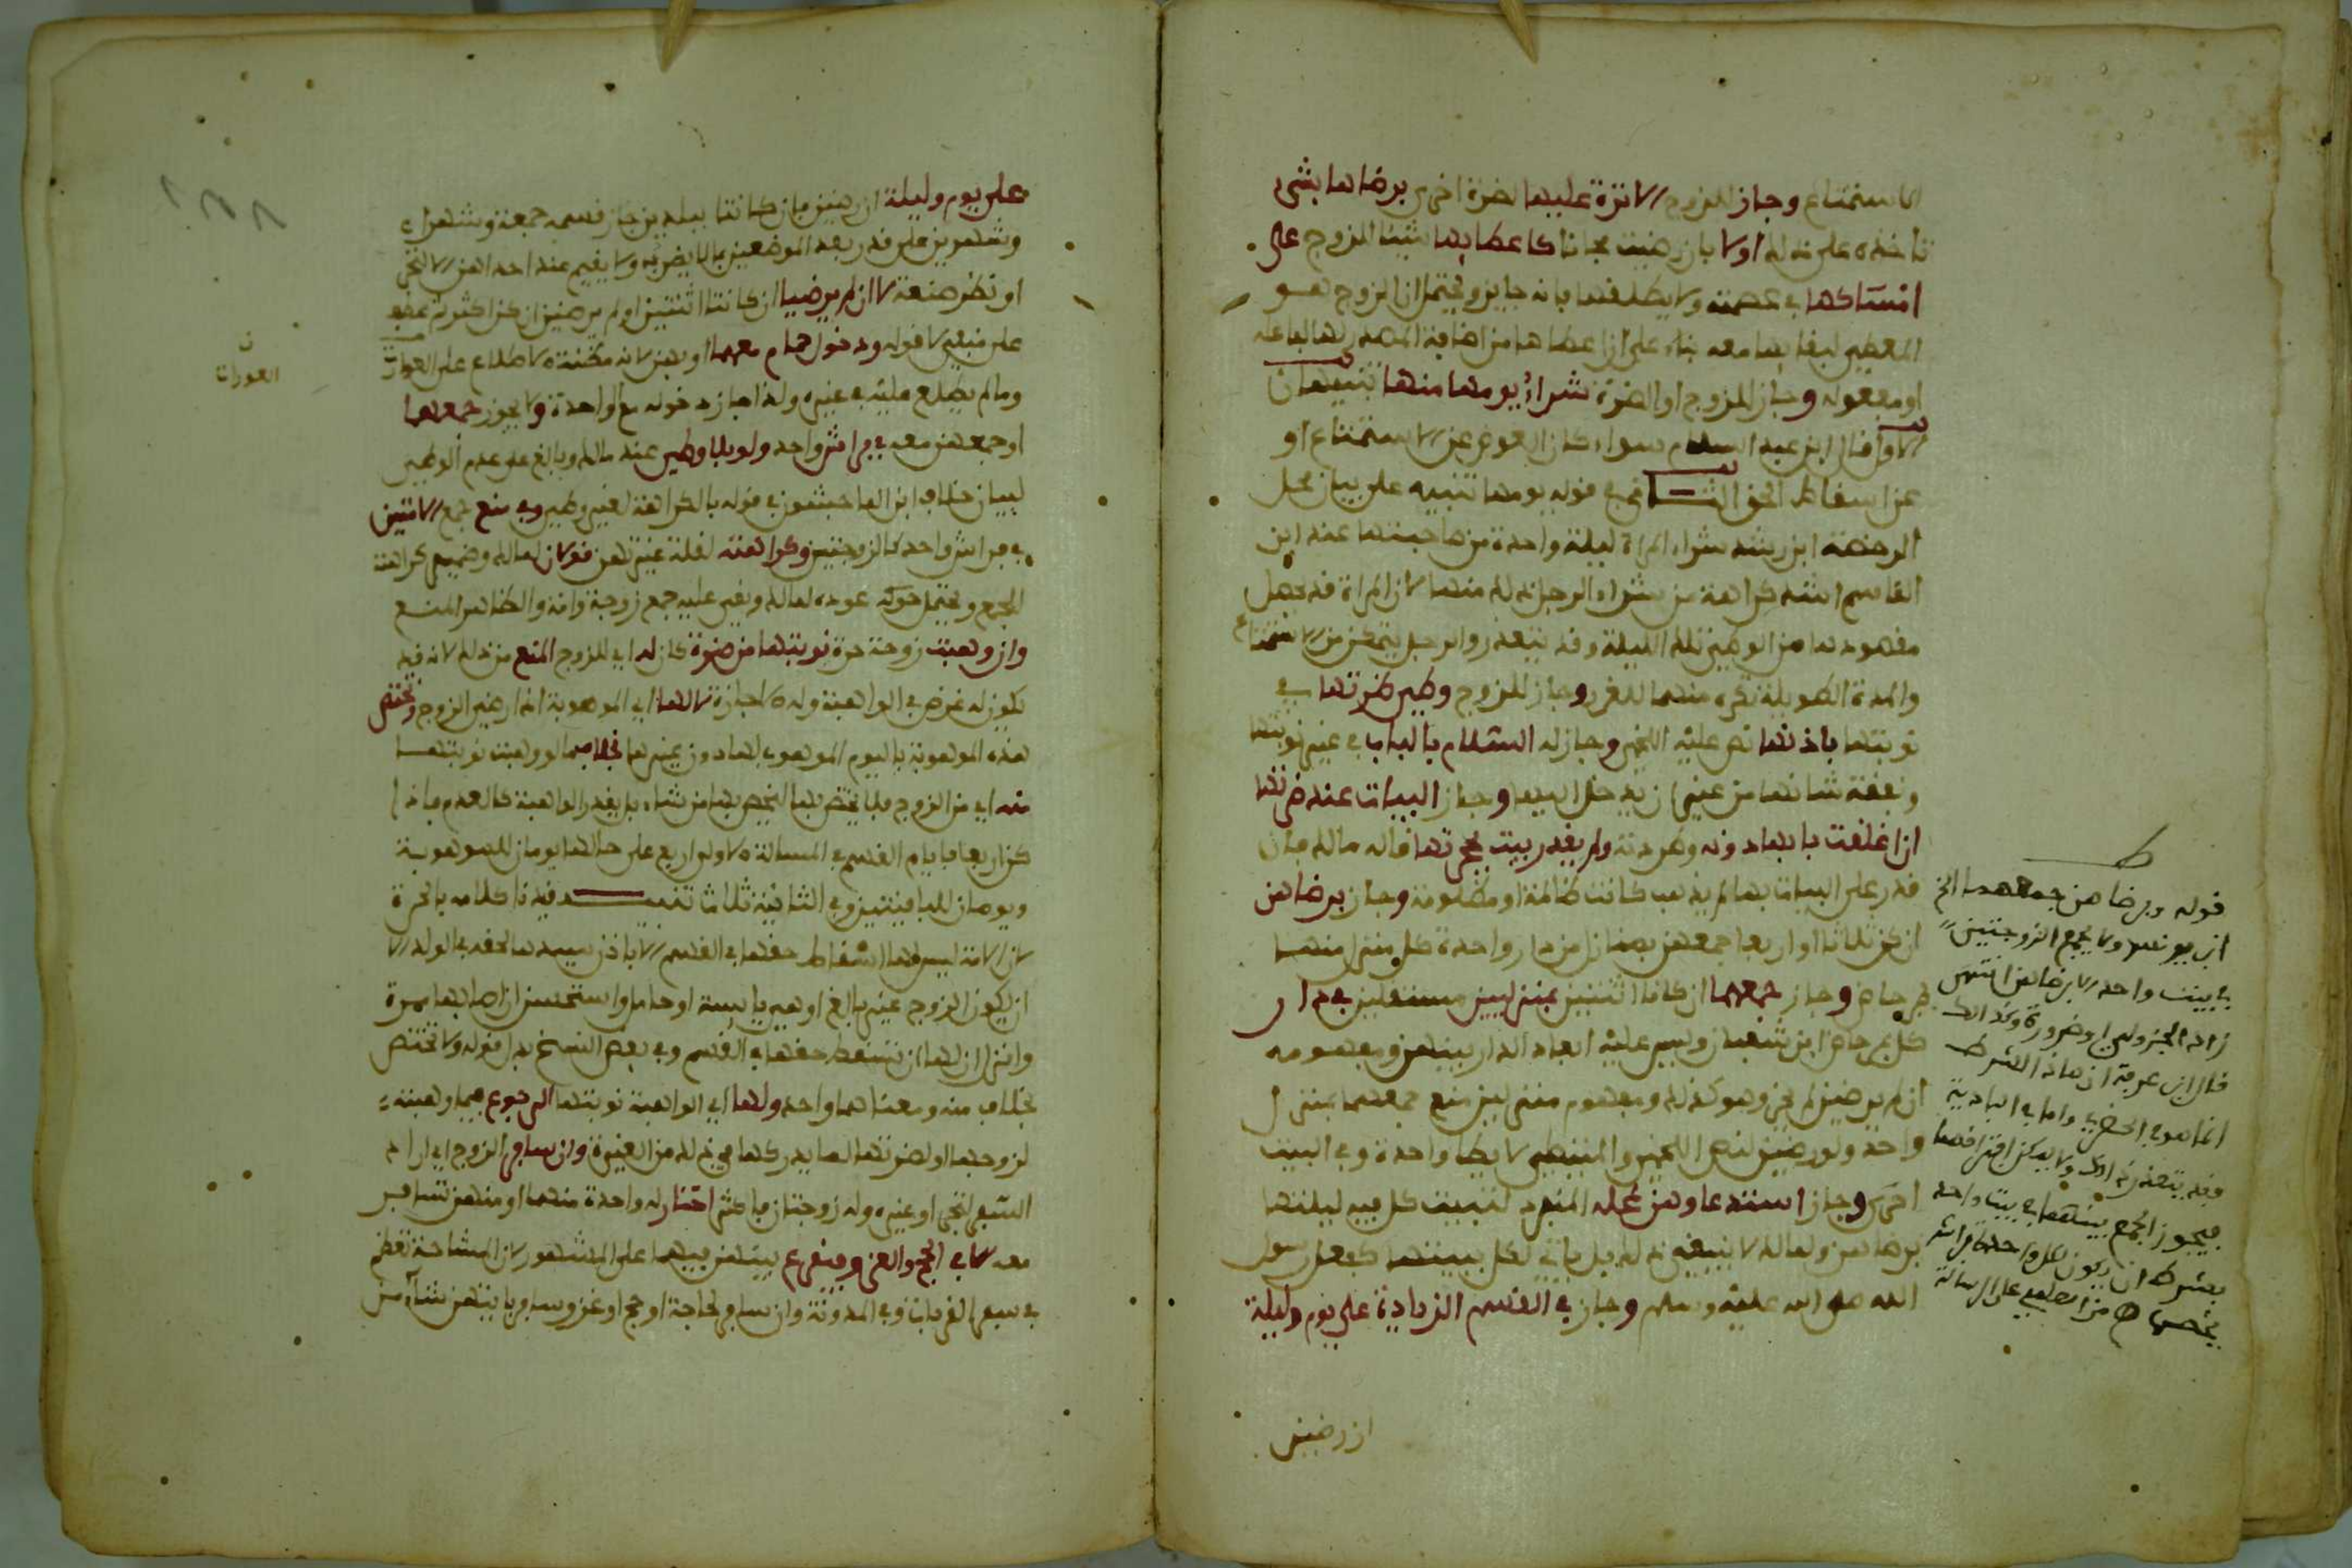 الاستمتاع وجاز للزوج الاثرة عليها لضرة اخرى برضاها بشيء
تاخذه على ذلك اولا بان رضيت مجانا كاعطايها شيئا للزوج على
امساكها في عصمته ولا يطلقها فانه جايز ويحتمل ان الزوج هو
المعطي لبقايها معه بناء على ان اعطاها من اضافة المصدر لفاعله
او مفعوله وجاز للزوج او الضرة شراء يومها منها تنبيهان
الاول قال ابن عبد السلام سواء كان العوض عن الاستمتاع او
عن اسقاط الحق الثاني في قوله يومها تنبيه على بيان محل
الرخصة ابن رشد شراء المراة ليلة واحدة من صاحبتها عند ابن
القاسم اشد كراهة من شراء الرجل ذلك منها لان المراة قد يحصل
مقصودها من الوطي تلك الليلة وقد يتعذر والرجل يتمكن من الاستمتاع
والمدة الطويلة تكره منهما للغرر وجاز للزوج وطي ضرتها في
نوبتها باذنها نص عليه اللخمي وجاز له السلام بالباب في غير نوبتها
وتفقد شانها من غير ان يدخل اليها وجاز البيات عند ضرتها
ان اغلقت بابها دونه وطردته ولم يقدر يبيت بحجرتها قاله مالك فان
قدر على البيات بها لم يذهب كانت ظالمة او مظلومة وجاز برضاهن
ان كن ثلاثا او اربعا جمعهن بمنازل من دار واحدة كل منزل منها
بمرحاض وجاز جمعهما ان كانا اثنتين بمنزلين مستقلين في دار
كل بمرحاض ابن شعبان وليس عليه ابعاد الدار بينهن ومفهومه
ان لم يرضين لم يجز وهو كذلك ومفهوم منزلين منع جمعهما بمنزل
واحد ولو رضين لنص اللخمي والمتيطي لا يطا واحدة وفي البيت
اخرى وجاز استدعاوهن لمحله المنفرد لتبيت كل فيه ليلتها
برضاهن ولمالك لا ينبغي ذلك بل ياتي لكل ببيتها كفعل رسول
الله صلى الله عليه وسلم وجاز في القسم الزيادة على يوم وليلة
ان رضين
ط
قوله وبرضاهن جمعهما الخ
ابن يونس ولا يجمع الزوجتين
في بيت واحد الا برضاهن انتهى
زاد الجزولي او ضرورة وكذلك
قال ابن عرفة ان هاذا الشرط
انما هو في الحضر واما في البادية
وقد يتعذر ذلك ولا يمكن افتراقهما
فيجوز الجمع بينهما في بيت واحد
بشرط ان يكون لكل واحدة فراش
على الرسالة
على يوم وليلة ان رضين فان كانتا ببلدين جاز قسمه جمعة وشهرا
وشهرين على قدر بعد الموضعين مما لا يضر به ولا يقيم عند احداهن الا لتجر
او نظر صنعة لا ان لم يرضيا ان كانتا اثنتين او لم يرضين ان كن اكثر ثم عطف
على منفي لا قوله ودخول حمام معهما او بهن لانه مظنة الاطلاع على العورات
وما لم يطلع عليه في غيره ولذا جاز دخوله مع واحدة ولا يجوز جمعهما
او جمعهن معه في فراش واحد ولو بلا وطي عند مالك وبالغ على عدم الوطي
لبيان خلاف ابن الماجشون في قوله بالكراهة لغير وطي وفي منع جمع الامتين
في فراش واحد كالزوجتين وكراهته لقلة غيرتهن قولان لمالك وضمير كراهته
للجمع ويحتمل عوده لمالك وبقي عليه جمع زوجة وامة والظاهر المنع
وان وهبت زوجة حرة نوبتها من ضرة كان له اي للزوج المنع من ذلك لانه قد
يكون له غرض في الواهبة وله الاجازة لا لها اي الموهوبة اذا رضي الزوج وتختص
هذه الموهوبة باليوم الموهوب لها دون غيرها بخلاف ما لو وهبت نوبتها
منه اي من الزوج فلا يختص بها ليخص بها من شاء بل يقدر الواهبة كالعدم فاذا
كن اربعا فايام القسم في المسالة الاولى اربع على حالها يومان للموهوبة
ويومان للباقيتين وفي الثانية ثلاثا تنبيه قيدنا كلامه بالحرة
لان الامة ليس لها اسقاط حقها في القسم الا باذن سيدها لحقه في الولد الا
ان يكون الزوج غير بالغ او هي يايسة او حاملا واستحسن ان اصابها مرة
وانزل ان لها ان تسقط حقها في القسم وفي بعض النسخ بدل قوله ولا تختص
بخلاف منه ومعناهما واحد ولها اي الواهبة نوبتها الرجوع فيما وهبته
لزوجها او لضرتها لما يدركها في ذلك من الغيرة وان سافر الزوج اي اراد
السفر لتجر او غيره وله زوجتان فاكثر اختار له واحدة منهما او منهن تسافر
معه الا في الحج والغزو فيقرع بينهن فيهما على المشهور لان المشاحة تعظم
في سفر القربات وفي المدونة وان سافر لحاجة او حج او غزو سافر بايتهن شاء من
ن
العورات